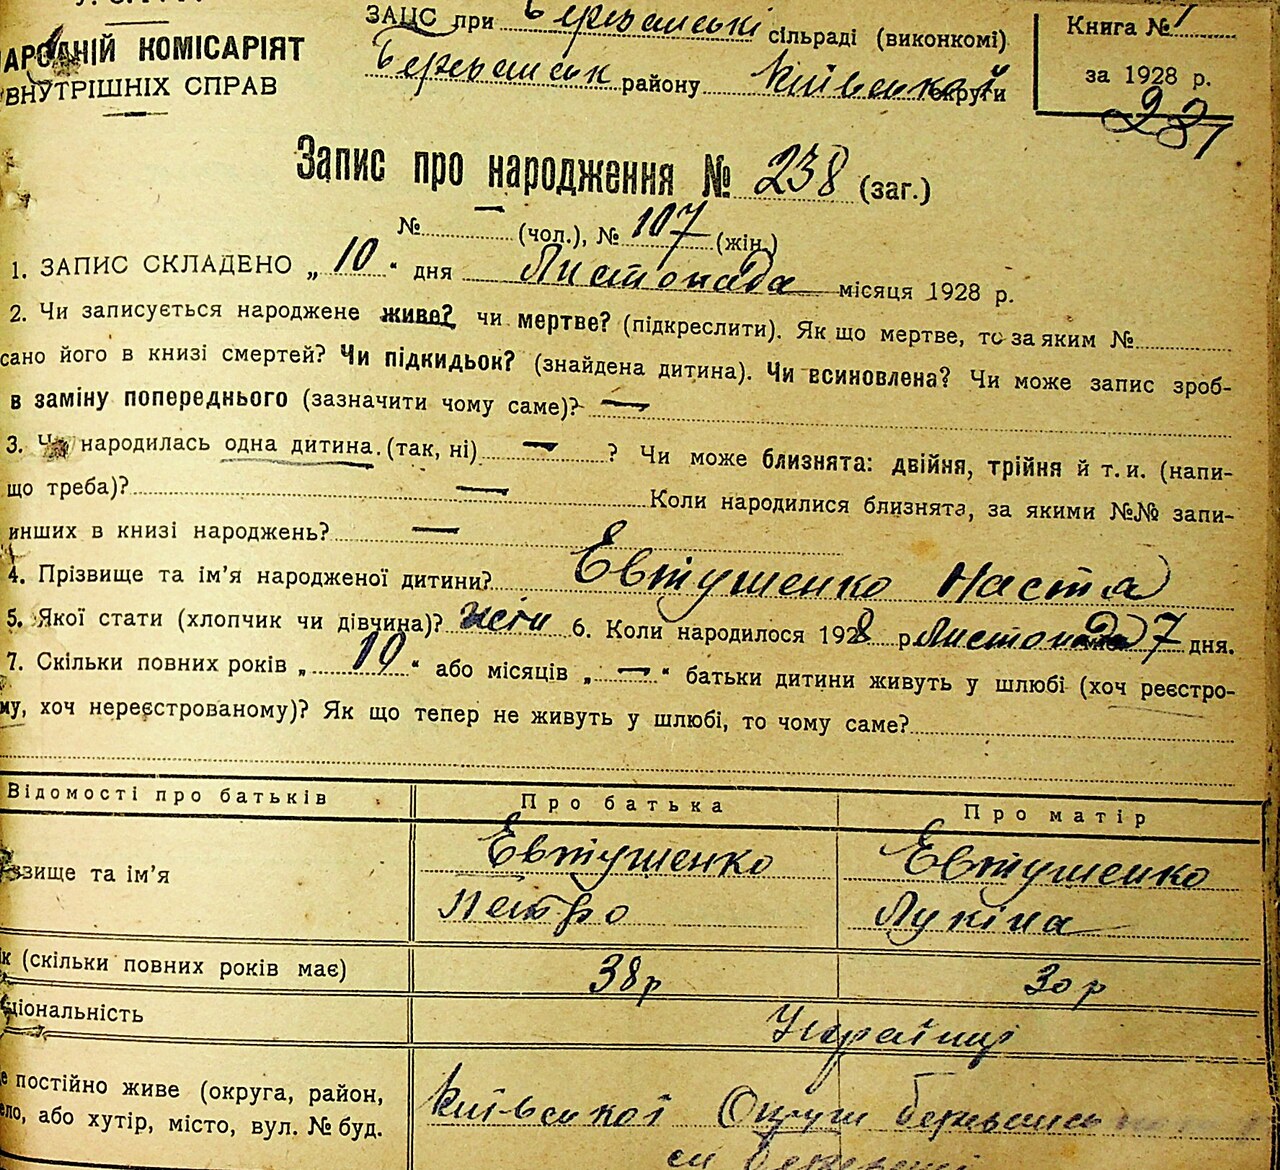 ЗАЦС при Березанські сільраді (виконкомі)
Книга № 1
НАРОДНІЙ КОМІСАРІЯТ
Березанськ району Київської округи
за 1928 р.
ВНУТРІШНІХ СПРАВ
237
Запис про народження № 238 (заг.)
№ — (чол.), № 107 (жін.)
1. ЗАПИС СКЛАДЕНО „ 10 “ дня Листопада місяця 1928 р.
2. Чи записується народжене живе? чи мертве? (підкреслити). Як що мертве, то за яким №
сано його в книзі смертей? Чи підкидьок? (знайдена дитина). Чи всиновлена? Чи може запис зроб-
в заміну попереднього (зазначити чому саме)? —
3. Чи народилась одна дитина. (так, ні) — ? Чи може близнята: двійня, трійня й т. и. (напи-
що треба)? — Коли народилися близнята, за якими №№ запи-
инших в книзі народжень? —
4. Прізвище та ім’я народженої дитини? Евтушенко Настя
5. Якої стати (хлопчик чи дівчина)? жіти 6. Коли народилося 1928 р. Листопада 7 дня.
7. Скільки повних років „ 10 “ або місяців „ — “ батьки дитини живуть у шлюбі (хоч реєстро-
му, хоч нереєстрованому)? Як що тепер не живуть у шлюбі, то чому саме?
Відомості про батьків Про батька Про матір
звище та ім’я Евтушенко Петро Евтушенко Лукіна
к (скільки повних років має) 38 р 30 р
ціональність Українці
е постійно живе (округа, район, Київської Округи
ело, або хутір, місто, вул. № буд.